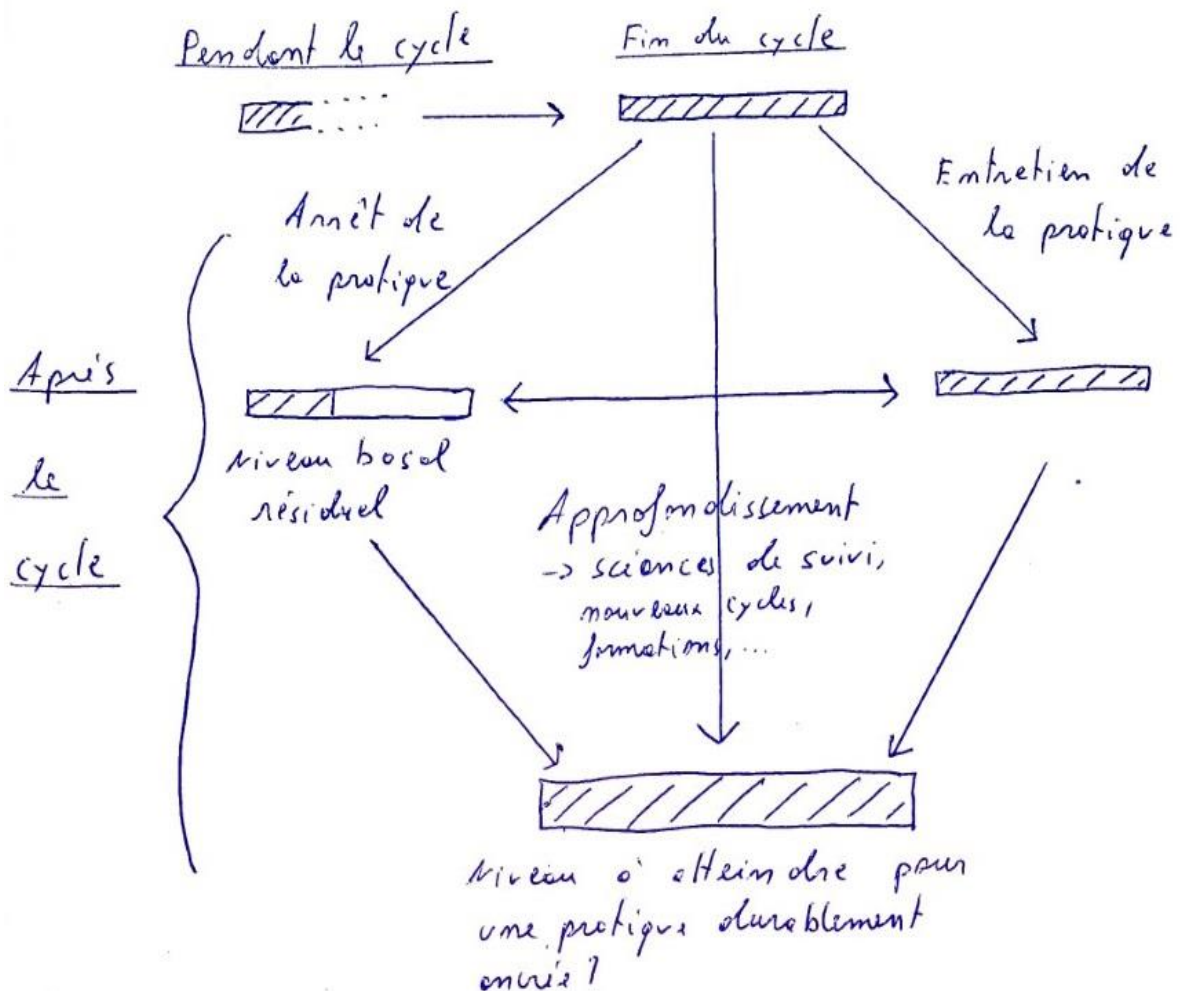 Pendant le cycle
Fin du cycle
Arrêt de
la pratique
Entretien de
la pratique
Après
le
cycle
Niveau basal
résiduel
Approfondissement
-> scéances de suivi,
nouveaux cycles,
formations, ...
Niveau à atteindre pour
une pratique durablement
ancrée ?